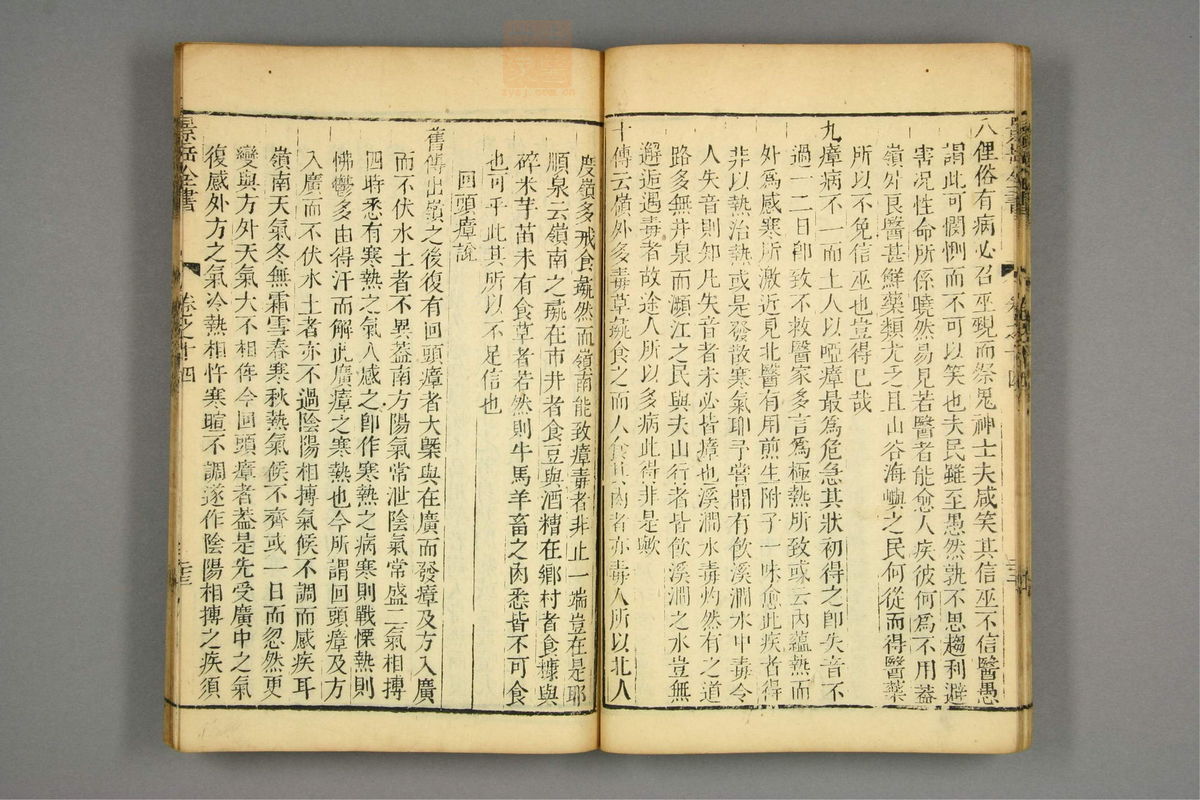 八俚俗有病必召巫覡而祭鬼神士夫咸笑其信巫不信醫愚
謂此可憫惻而不可以笑也夫民雖至愚然孰不思趨利避
害況性命所係曉然易見若醫者能愈人疾彼何爲不用蓋
嶺外良醫甚鮮藥類尤乏且山谷海嶼之民何從而得醫藥
所以不免信巫也豈得已哉
九瘴病不一而土人以啞瘴最爲危急其狀初得之即失音不
過一二日即致不救醫家多言爲極熱所致或云內蘊熱而
外爲感寒所激近見北醫有用煎生附子一味愈此疾者得
非以熱治熱或是發散寒氣耶予嘗聞有飲溪澗水中毒令
人失音則知凡失音者未必皆瘴也溪澗水毒灼然有之道
路多無井泉而瀕江之民與夫山行者皆飲溪澗之水豈無
邂逅遇毒者故途人所以多病此得非是歟
十傳云嶺外多毒草彘食之而人食其肉者亦毒人所以北人
度嶺多戒食彘然而嶺南能致瘴毒者非止一端豈在是耶
順泉云嶺南之彘在市井者食豆與酒糟在鄉村者食糠與
碎米芋苗未有食草者若然則牛馬羊畜之肉悉皆不可食
也可乎此其所以不足信也
回頭瘴說
舊傳出嶺之後復有回頭瘴者大槩與在廣而發瘴及方入廣
而不伏水土者不異蓋南方陽氣常泄陰氣常盛二氣相搏
四時悉有寒熱之氣人感之即作寒熱之病寒則戰慄熱則
怫鬱多由得汗而解此廣瘴之寒熱也今所謂回頭瘴及方
入廣而不伏水土者亦不過陰陽相搏氣候不調而感疾耳
嶺南天氣冬無霜雪春寒秋熱氣候不齊或一日而忽然更
變與方外天氣大不相侔今回頭瘴者蓋是先受廣中之氣
復感外方之氣冷熱相忤寒暄不調遂作陰陽相搏之疾須
景岳全書
卷之十四